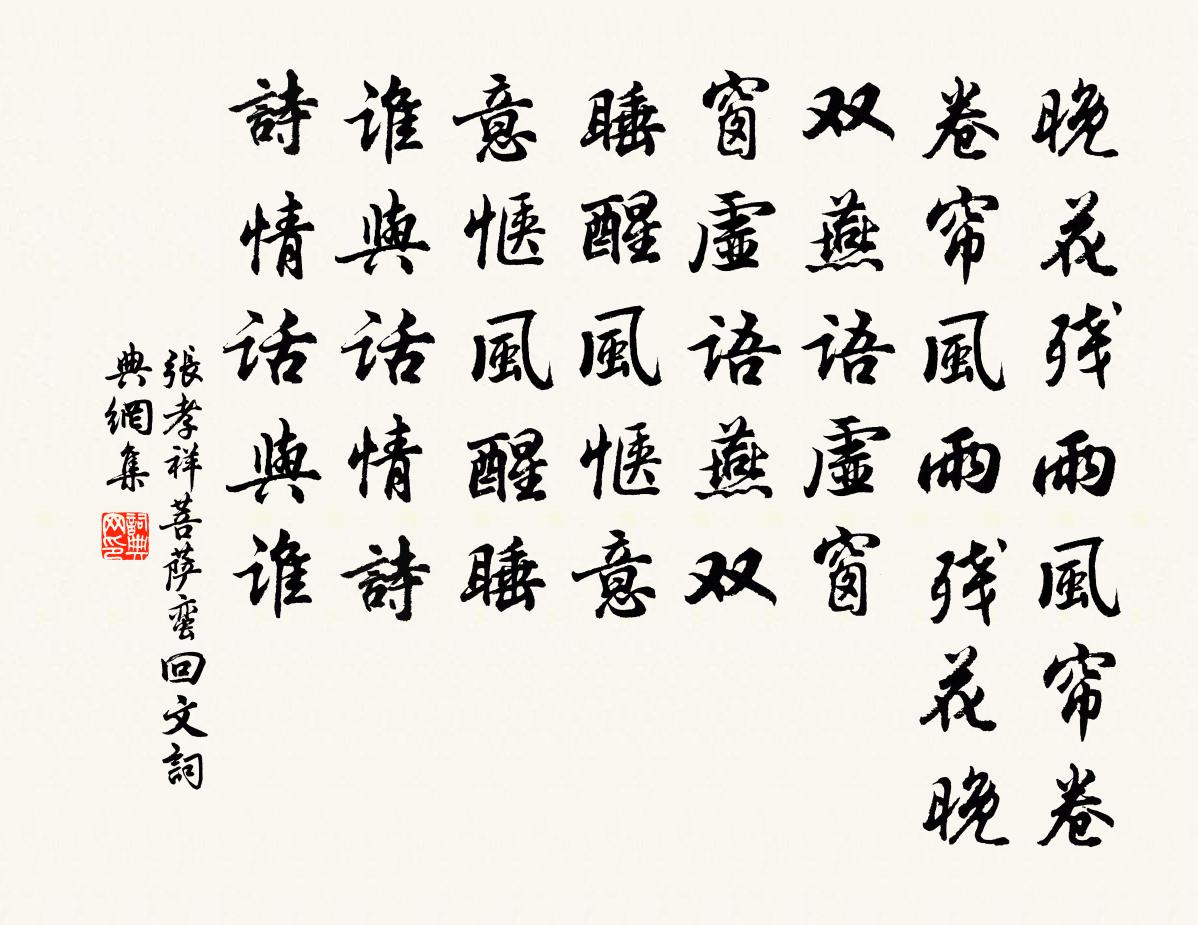 晚花残雨風帘卷
卷帘風雨残花晚
双燕語虛窗
窗虛語燕双
睡醒風惬意
意惬風醒睡
誰與話情詩
詩情話與誰
張孝祥菩萨蛮回文詞
典網集
詞典网印